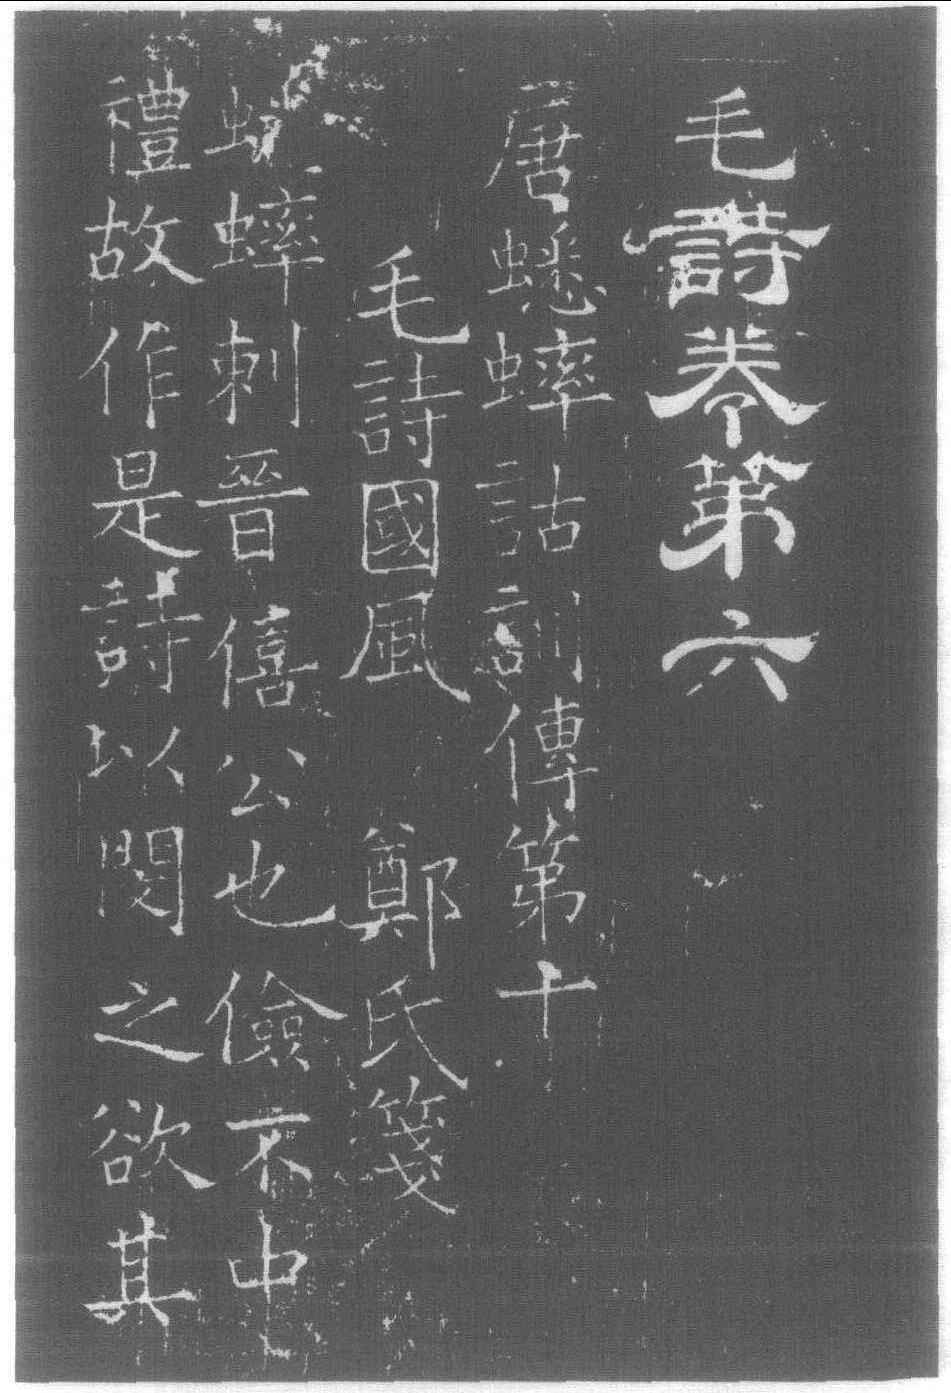 毛詩卷第六
唐蟋蟀詁訓傳第十
毛詩國風 鄭氏箋
蟋蟀刺晉僖公也儉不中
禮故作是詩以閔之欲其